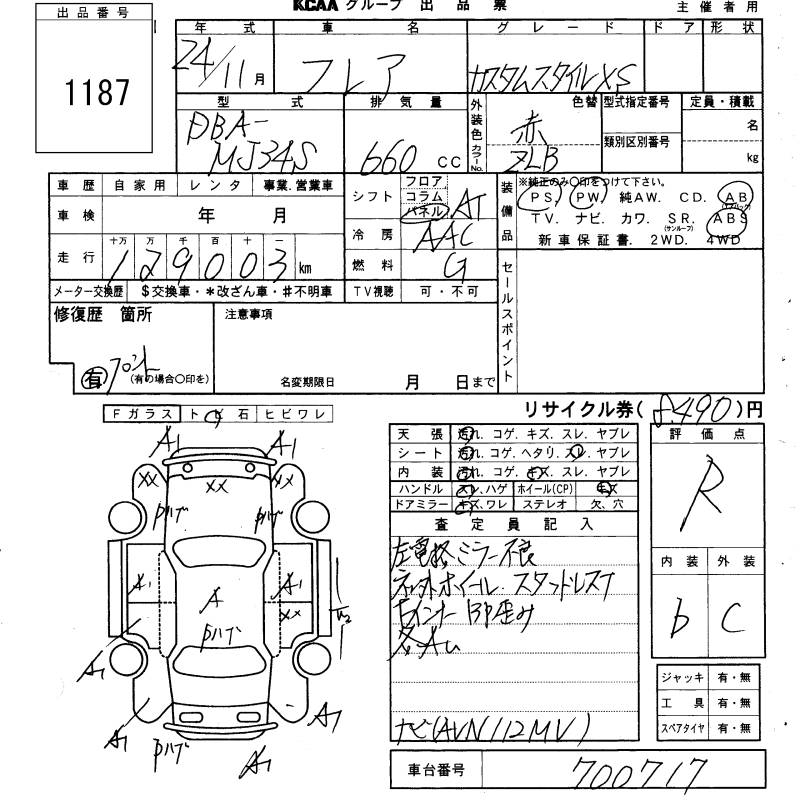 KCAA グループ 出品票
主催者用
出品番号
1187
年式 車名 グレード ドア 形状
24/11月 フレア カスタムスタイルXS
型式 排気量 外装色 カラーNo. 色替 型式指定番号 定員・積載
DBA-MJ34S 660cc 赤 ZLB 類別区別番号 名 kg
車歴 自家用 レンタ 事業.営業車
車検 年 月
走行 十万 万 千 百 十 一
129003 km
メーター交換歴 $交換車・*改ざん車・#不明車
シフト フロア コラム パネル AT
冷房 AAC
燃料 G
TV視聴 可・不可
装備品 ※純正のみ○印をつけて下さい。
PS. PW. 純AW. CD. AB (エアバック)
TV. ナビ. カワ. SR. (サンルーフ) ABS
新車保証書. 2WD. 4WD
セールスポイント
修復歴 箇所
有 フロント
(有の場合○印を)
注意事項
名変期限日 月 日まで
リサイクル券(8,490)円
Fガラス トビ石 ヒビワレ
天張 汚れ. コゲ. キズ. スレ. ヤブレ
シート 汚れ. コゲ. ヘタリ. スレ. ヤブレ
内装 汚れ. コゲ. キズ. スレ. ヤブレ
ハンドル スレ.ハゲ ホイール(CP) キズ
ドアミラー キズ.ワレ ステレオ 欠.穴
査定員記入
左電格ミラー不良
ネットホイール スタッドレスT
各AU
ナビ(AVN112MV)
評価点
R
内装 外装
b C
ジャッキ 有・無
工具 有・無
スペアタイヤ 有・無
車台番号 700717
A1 A1
XX XX XX
Pハゲ Pハゲ
A1 A A1
XX
Pハゲ
A1
A1 A1
Pハゲ
A1